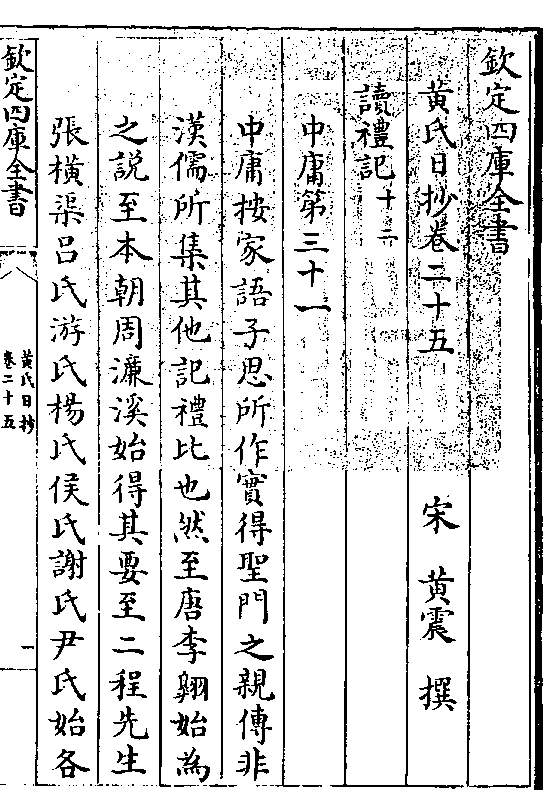 欽定四庫全書
黃氏日抄卷二十五
宋 黃震 撰
讀禮記十二
中庸第三十一
中庸按家語子思所作實得聖門之親傳非
漢儒所集其他記禮比也然至唐李翶始為
之說至本朝周濂溪始得其要至二程先生
張橫渠呂氏游氏楊氏侯氏謝氏尹氏始各
欽定四庫全書
黃氏日抄
卷二十五
一